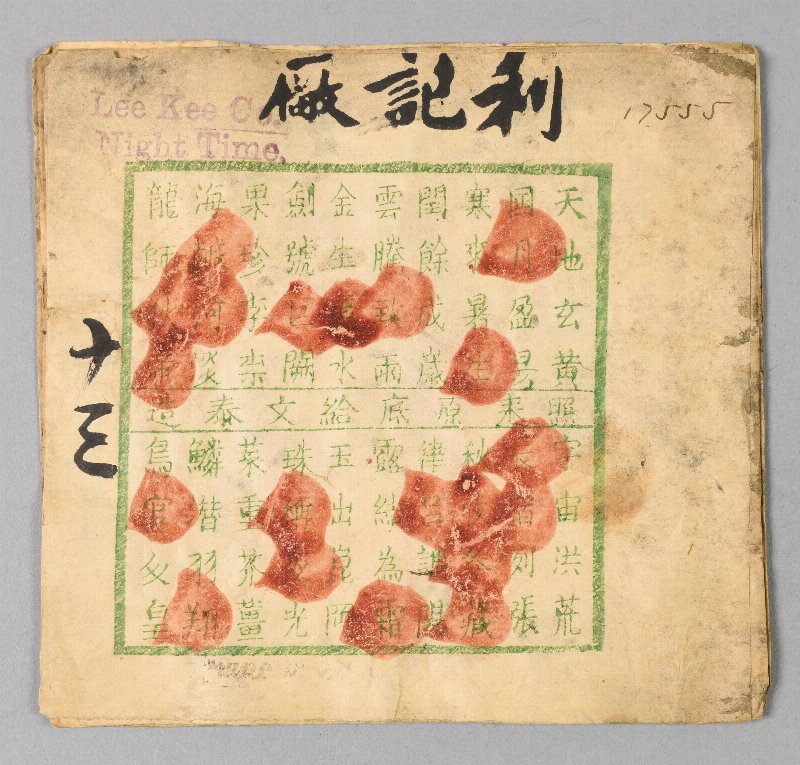 利記厰
17555
Lee Kee Co.
Night Time.
天地玄黃
月盈昃
寒來暑往
閏餘成歲
雲騰致雨
金生水
劍號巨闕
果珍李柰
海鹹河淡
龍師火帝
照票原底給文泰造
宇宙洪荒
辰宿列張
秋收冬藏
律呂調陽
露結為霜
玉出崑岡
珠稱夜光
菜重芥薑
鱗潛羽翔
鳥官人皇
十三